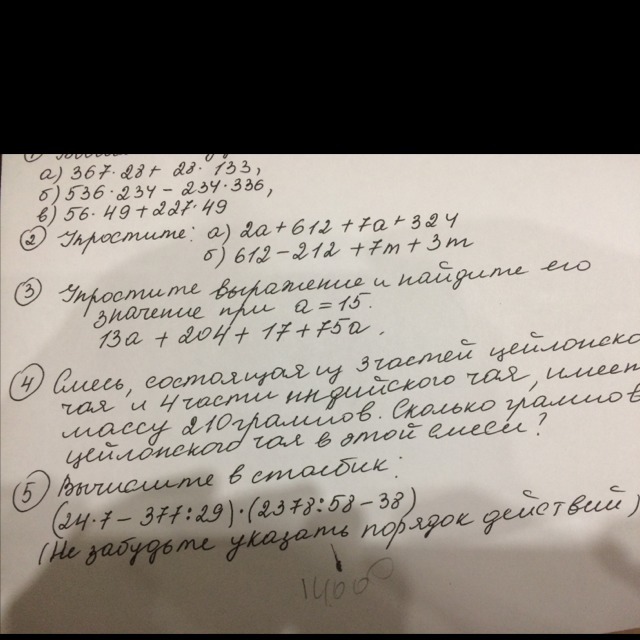 а) 367·28 + 28·133,
б) 536·234 – 234·336,
в) 56·49 + 227·49
② Упростите: а) 2а + 612 + 7а + 324
б) 612 – 212 + 7m + 3m
③ Упростите выражение и найдите его
значение при а = 15.
13а + 204 + 17 + 75а.
④ Смесь, состоящая из 3 частей цейлонско
чая и 4 части индийского чая, имеет
массу 210 граммов. Сколько граммов
цейлонского чая в этой смеси?
⑤ Вычислите в столбик:
(24·7 – 377:29)·(2378:58 – 38)
(Не забудьте указать порядок действий)